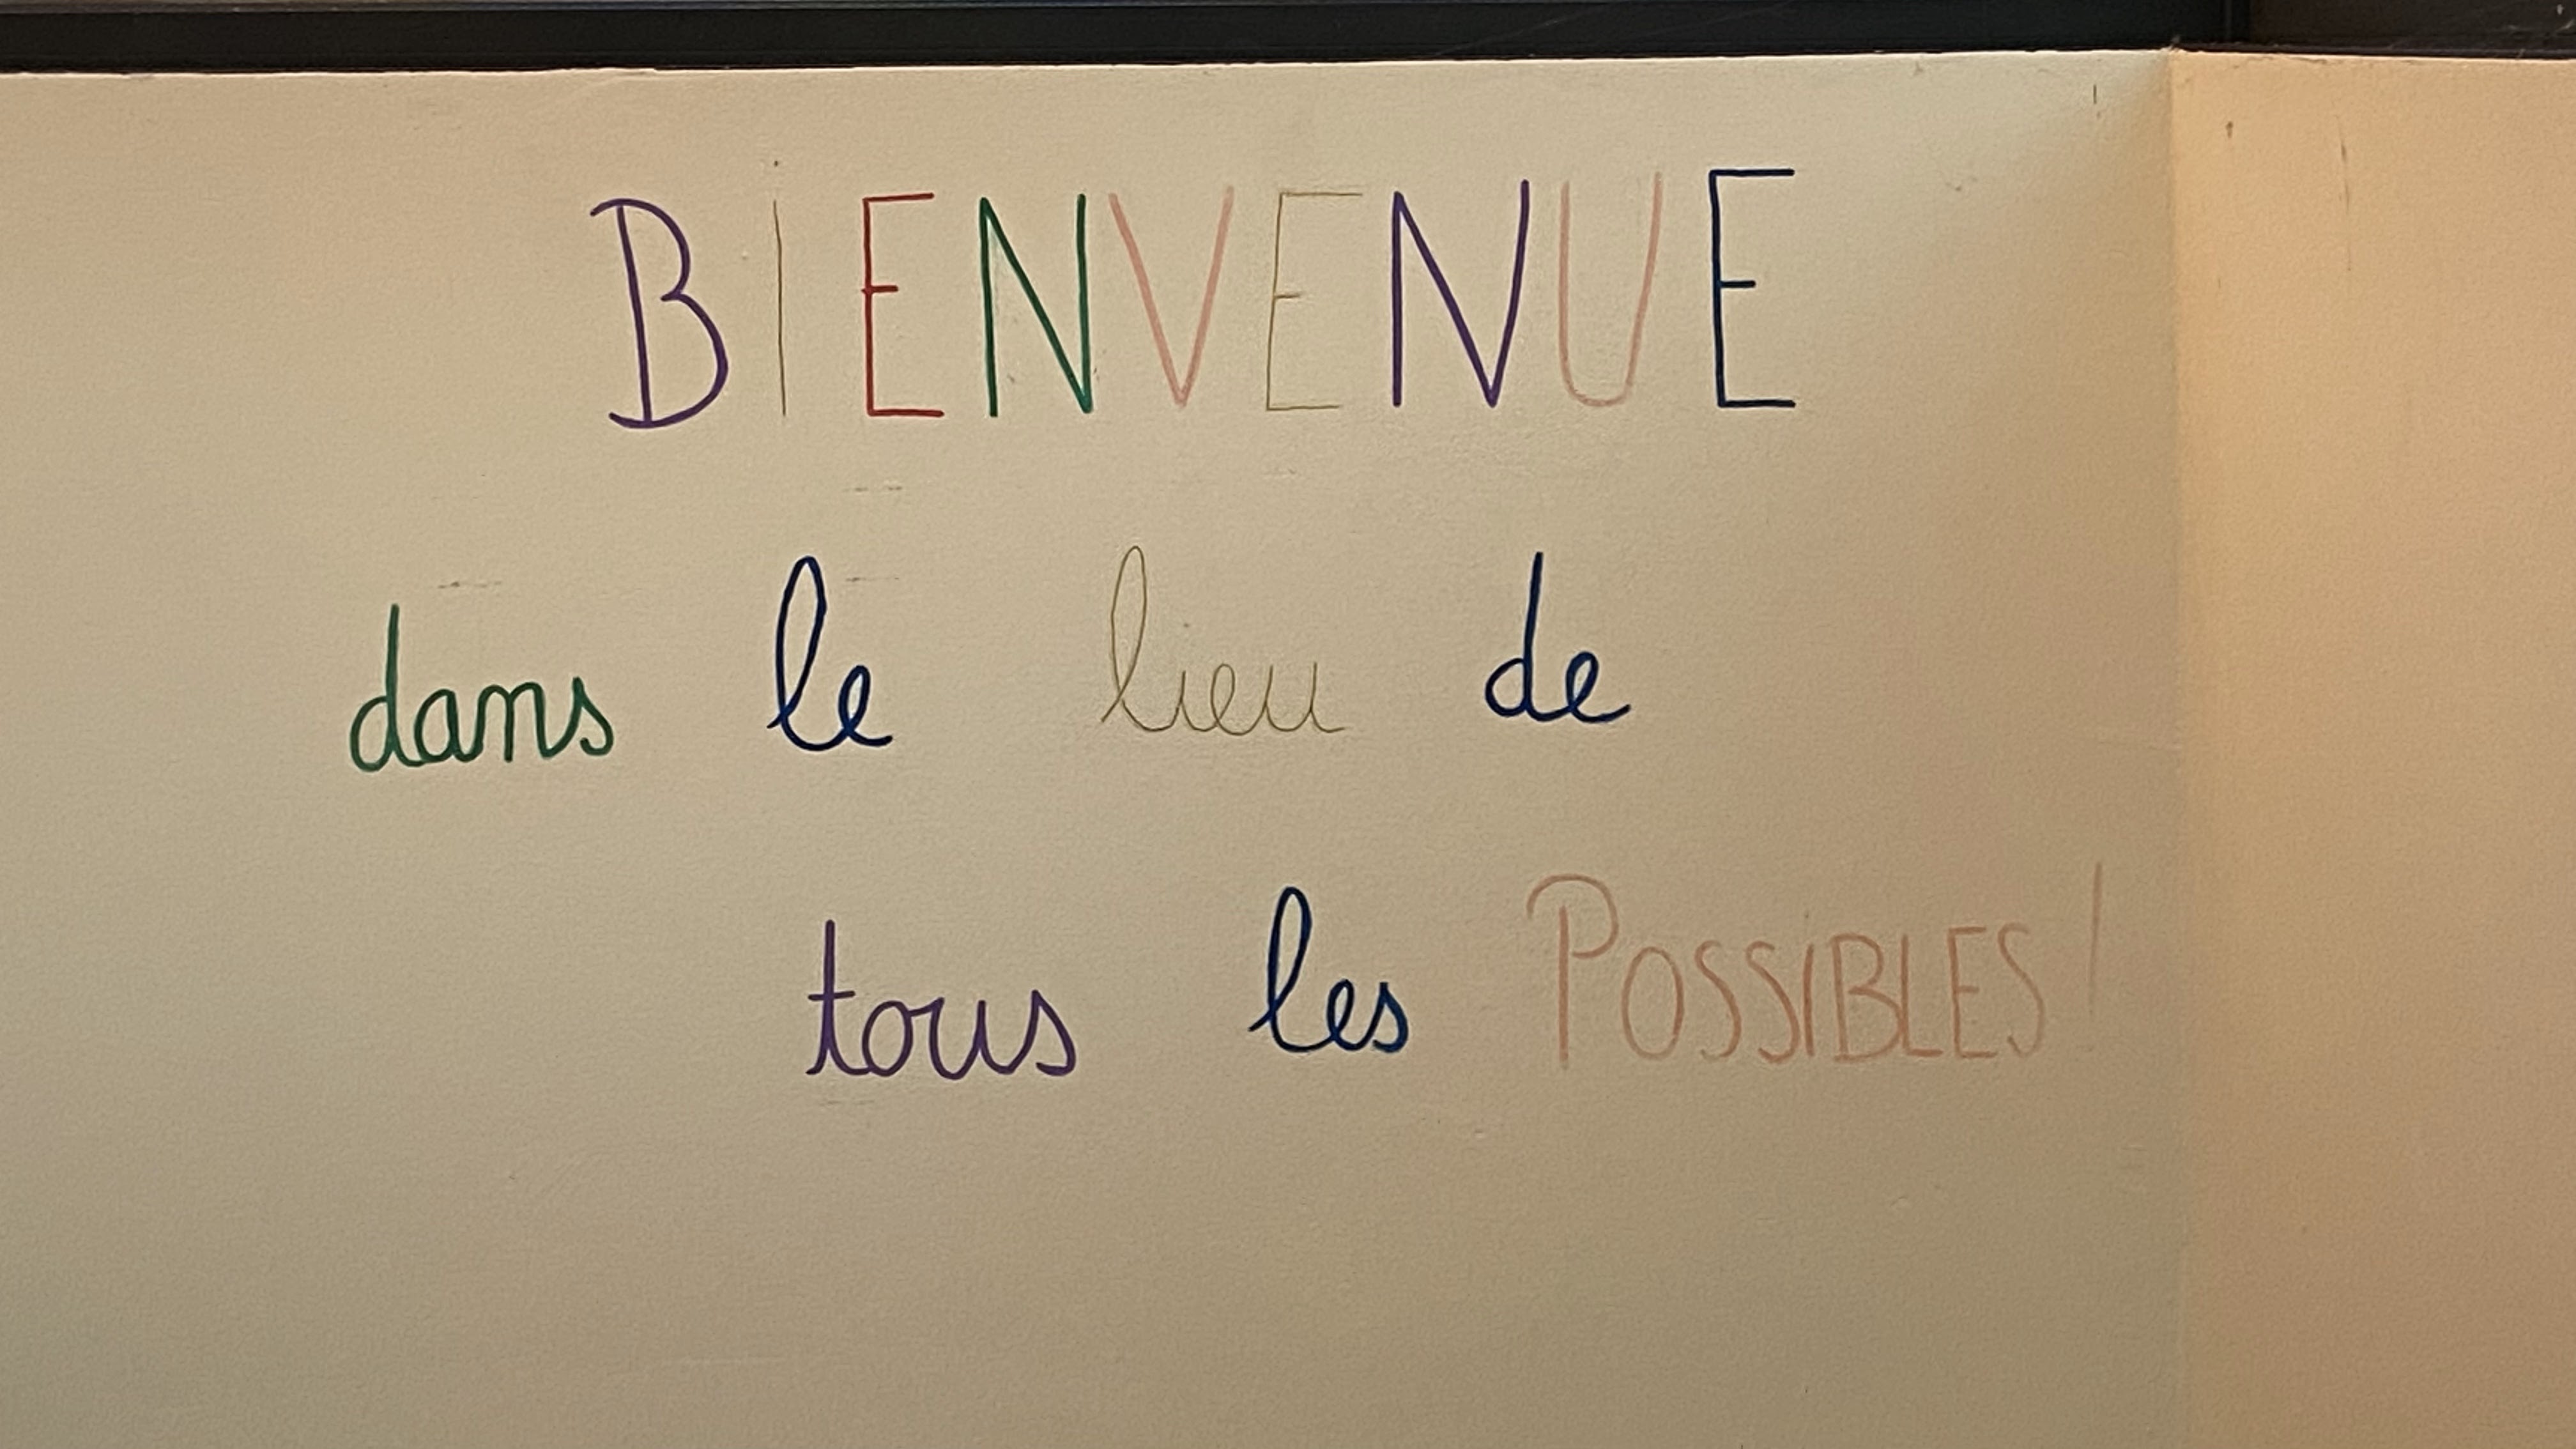 BIENVENUE
dans le lieu de
tous les POSSIBLES!